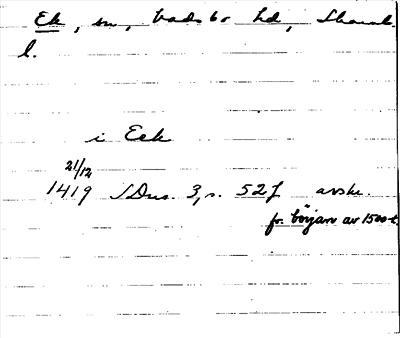 Ek, sn, Vadsbo hd, Skarab.
l.
i Eek
21/12
1419 SDns. 3, s. 52f avskr.
fr. början av 1500-t.